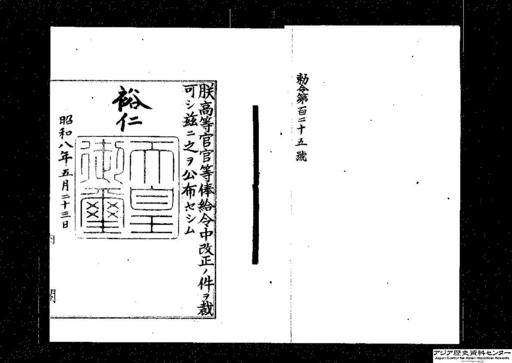 勅令第百二十五號
朕高等官官等俸給令中改正ノ件ヲ裁
可シ玆ニ之ヲ公布セシム
裕仁
天皇
御璽
昭和八年五月二十三日
内閣
アジア歴史資料センター
Japan Center for Asian Historical Records